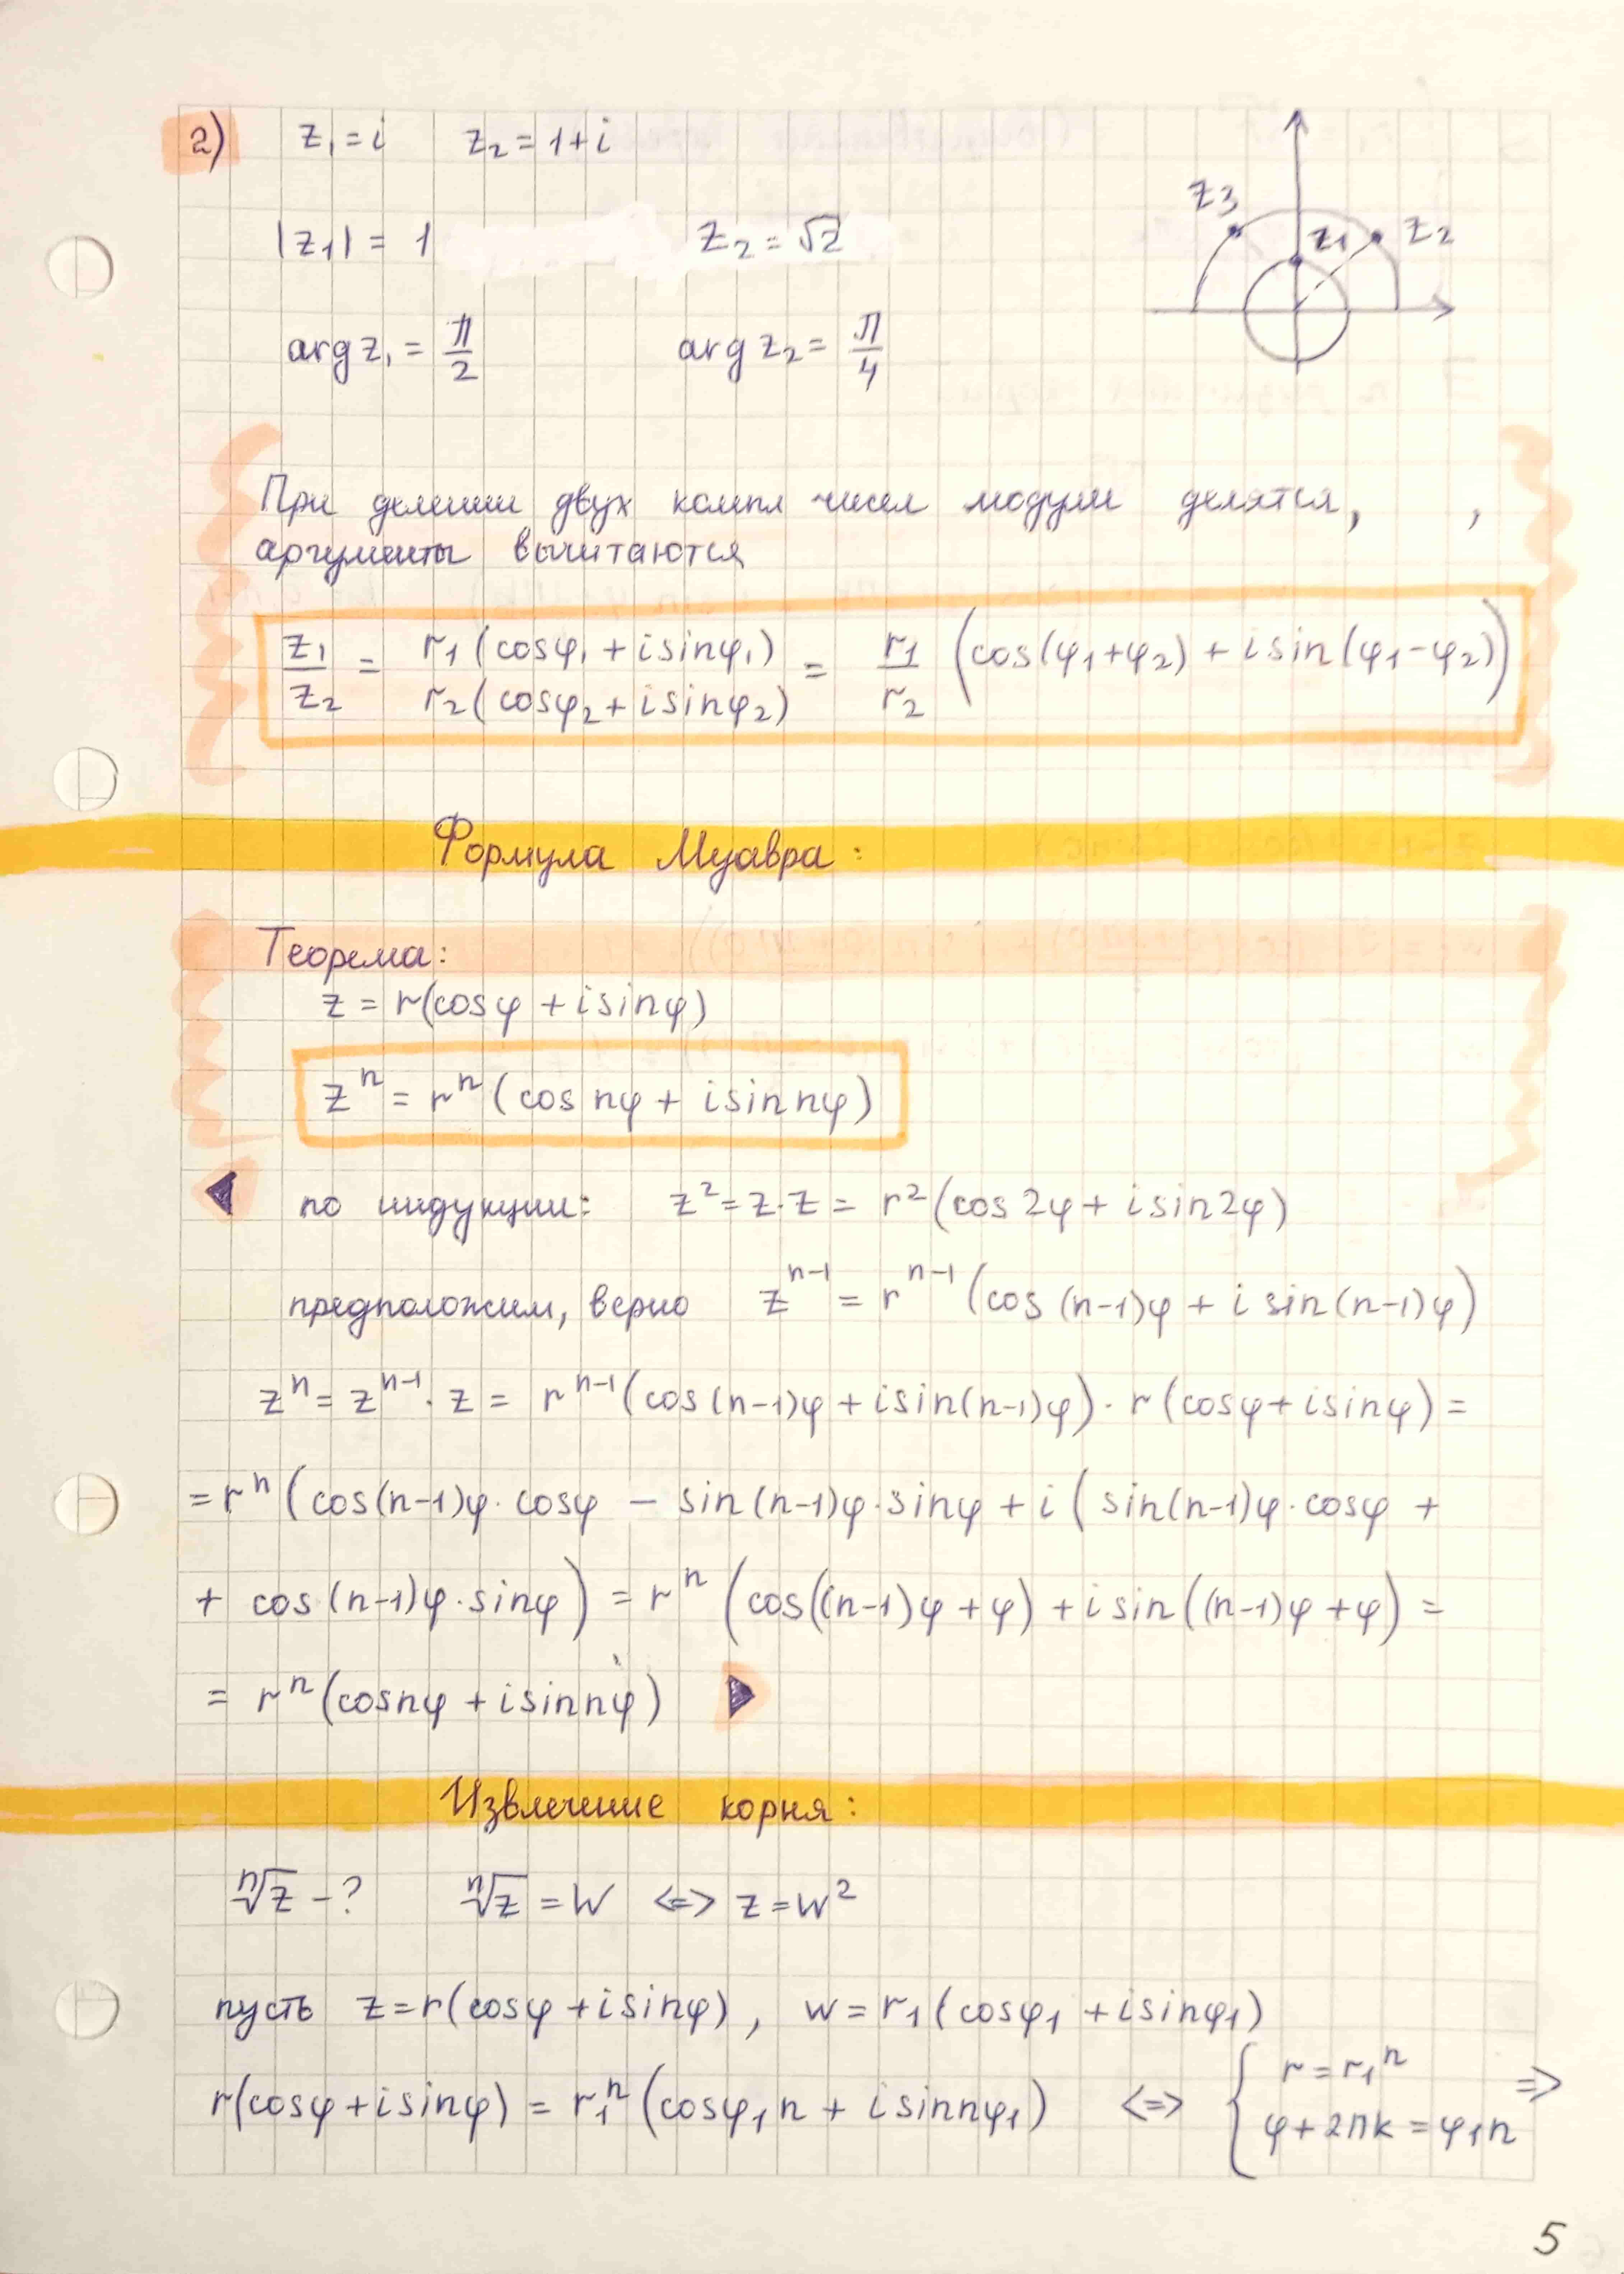 2) z₁ = i z₂ = 1+i
|z₁| = 1 z₂ = √2
arg z₁ = π/2 arg z₂ = π/4
z₃ z₁ z₂
При делении двух компл чисел модули делятся, ,
аргументы вычитаются
z₁/z₂ = r₁(cosφ₁ + isinφ₁)/r₂(cosφ₂ + isinφ₂) = r₁/r₂ (cos(φ₁+φ₂) + isin(φ₁-φ₂))
Формула Муавра:
Теорема:
z = r(cosφ + isinφ)
zⁿ = rⁿ(cos nφ + isin nφ)
◀ по индукции: z² = z·z = r²(cos2φ + isin2φ)
предположим, верно zⁿ⁻¹ = rⁿ⁻¹(cos(n-1)φ + isin(n-1)φ)
zⁿ = zⁿ⁻¹·z = rⁿ⁻¹(cos(n-1)φ + isin(n-1)φ)·r(cosφ + isinφ) =
= rⁿ(cos(n-1)φ·cosφ − sin(n-1)φ·sinφ + i(sin(n-1)φ·cosφ +
+ cos(n-1)φ·sinφ) = rⁿ(cos((n-1)φ+φ) + isin((n-1)φ+φ) =
= rⁿ(cosnφ + isinnφ) ▶
Извлечение корня:
ⁿ√z - ? ⁿ√z = w <=> z = w²
пусть z = r(cosφ + isinφ), w = r₁(cosφ₁ + isinφ₁)
r(cosφ + isinφ) = r₁ⁿ(cosφ₁n + isinnφ₁) <=> { r = r₁ⁿ =>
φ + 2πk = φ₁n
5